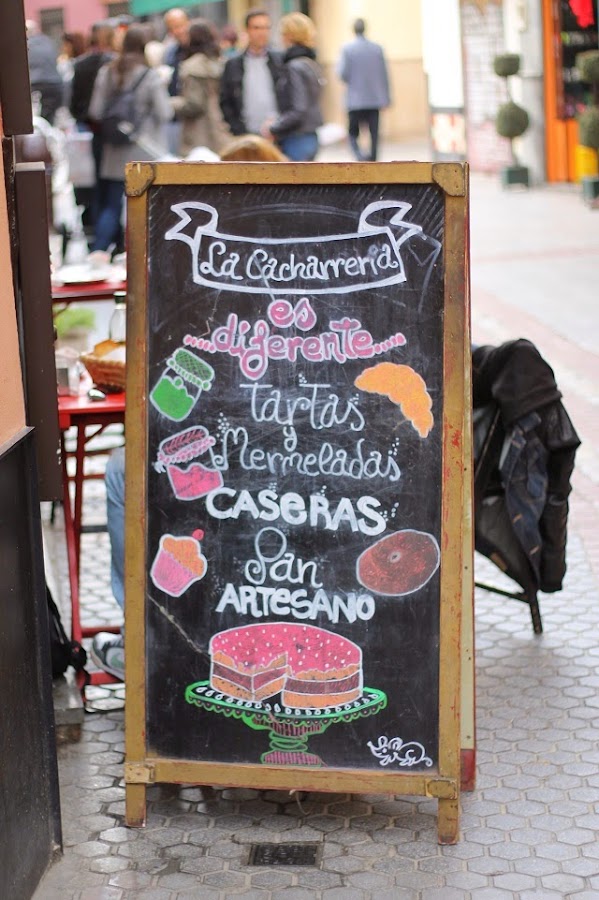 La Cacharrería
es
diferente
Tartas
y
Mermeladas
CASERAS
Pan
ARTESANO